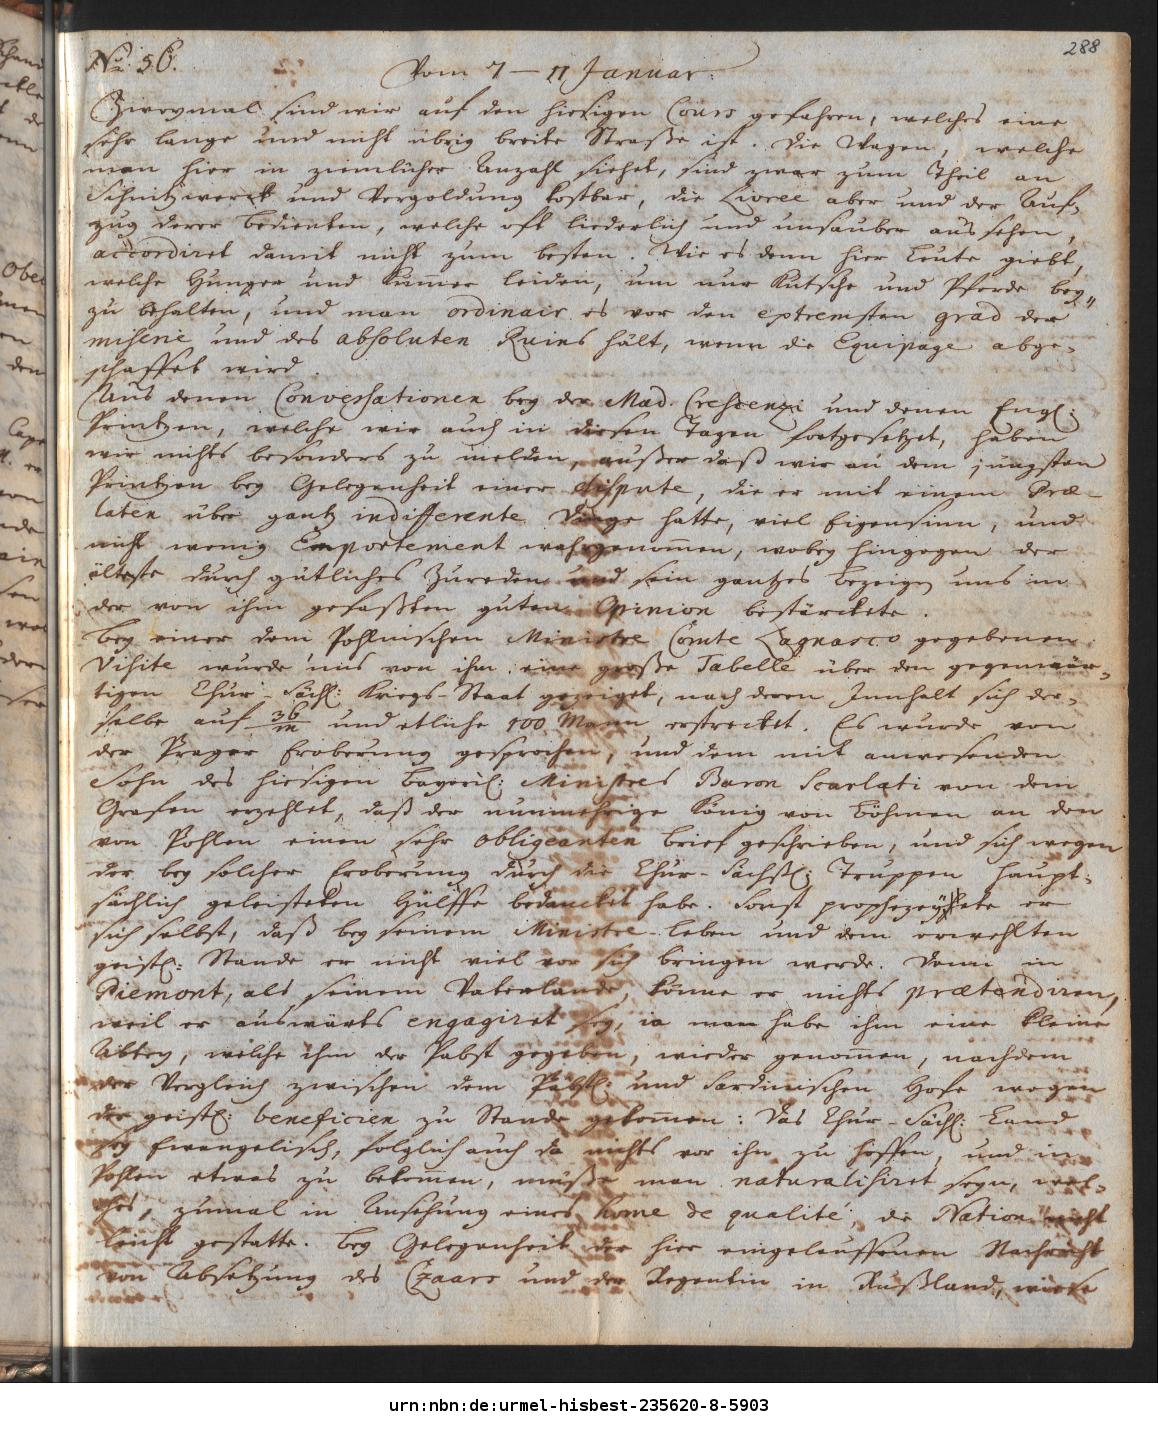 288
No: 56.
Vom 7 – 11 Januar.
Zweymal sind wir auf den hiesigen Cours gefahren, welches eine
sehr lange und nicht übrig breite Straße ist. Die Wagen, welche
man hier in ziemlicher Anzahl siehet, sind zwar zum Theil an
Schnitzwerck und Vergoldung kostbar, die Livree aber und der Auf-
zug derer Bedienten, welche oft liederlich und unsauber aussehen,
accordiret damit nicht zum besten. Wie es denn hier Leute giebt,
welche Hunger und Kummer leiden, um nur Kutsche und Pferde bey-
zu behalten, und man ordinair es vor den extremsten grad der
miserie und des absoluten Ruins hält, wenn die Equipage abge-
schaffet wird.
Aus denen Conversationen bey der Mad. Crescenzi und denen Engl:
Printzen, welche wir auch in diesen Tagen fortgesetzet, haben
wir nichts besonders zu melden, außer daß wir an dem jüngsten
Printzen bey Gelegenheit einer dispute, die er mit einem Præ-
laten über gantz indifferente Dinge hatte, viel Eigensinn, und
nicht wenig Emportement wahrgenommen, wobey hingegen der
älteste durch gütliches Zureden und sein gantzes Bezeigen uns in
der von ihm gefaßten guten Opinion bestärckete.
Bey einer dem Pohlnischen Ministre Comte Lagnasco gegebenen
Visite wurde uns von ihm eine große Tabelle über den gegenwär-
tigen Chur-Sächs: Kriegs-Staat gezeiget, nach deren Innhalt sich der-
selbe auf 36/m und etliche 100 Mann erstrecket. Es wurde von
der Prager Eroberung gesprochen, und dem mit anwesenden
Sohn des hiesigen Bayeris: Ministres Baron Scarlati von dem
Grafen erzehlet, daß der nunmehrige König von Böhmen an den
von Pohlen einen sehr obligeanten Brief geschrieben, und sich wegen
der bey solcher Eroberung durch die Chur-Sächß: Truppen haupt-
sächlich geleisteten Hülffe bedancket habe. Sonst prophezeyete er
sich selbst, daß bey seinem Ministre-Leben und dem erwehlten
geistl: Stande er nicht viel vor sich bringen werde. Denn in
Piemont, als seinem Vaterlande, könne er nichts prætendiren,
weil er auswärts engagiret sey, ia man habe ihm eine kleine
Abtey, welche ihm der Pabst gegeben, wieder genommen, nachdem
der Vergleich zwischen dem Päbstl: und Sardinischen Hofe wegen
der geistl: beneficien zu Stande gekommen: Das Chur-Sächs: Land
sey Evangelisch, folglich auch da nichts vor ihn zu hoffen, und in
Pohlen etwas zu bekommen, müße man naturalisiret seyn, wel-
ches, zumal in Ansehung eines home de qualité, die Nation nicht
leicht gestatte. Bey Gelegenheit der hier eingelauffenen Nachricht
von Absetzung des Czaars und der Regentin in Rußland, wiese
urn:nbn:de:urmel-hisbest-235620-8-5903